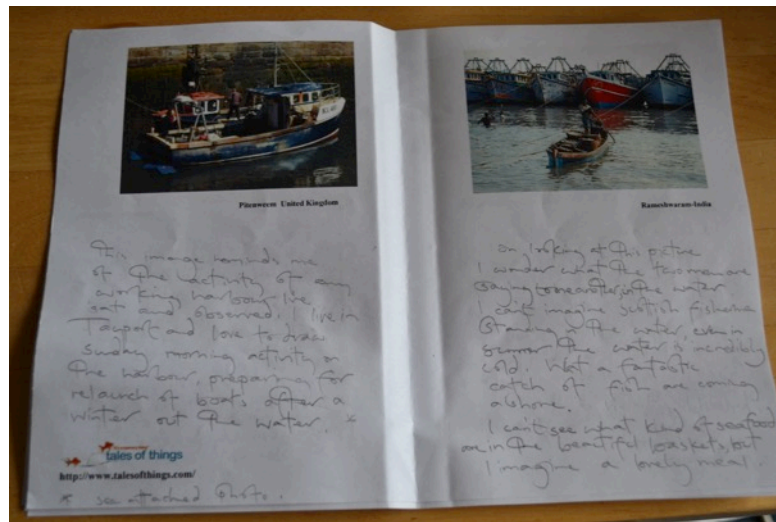 Pitenweem United Kingdom
This image reminds me
of the activity of any
working harbour I've
sat and observed. I live in
Tayport and love to draw
Sunday morning activity on
the harbour, preparation for
relaunch of boats after a
winter out the water. *
tales of things
http://www.talesofthings.com/
* see attached photo.
Rameshwaram-India
On looking at this picture
I wonder what the two men are
saying to one another, in the water
I can't imagine scottish fishermen
standing in the water, even in
summer the water is incredibly
cold. What a fatastic
catch of fish are coming
ashore.
I can't see what kind of seafood
are in the beautiful baskets, but
I imagine a lovely meal.